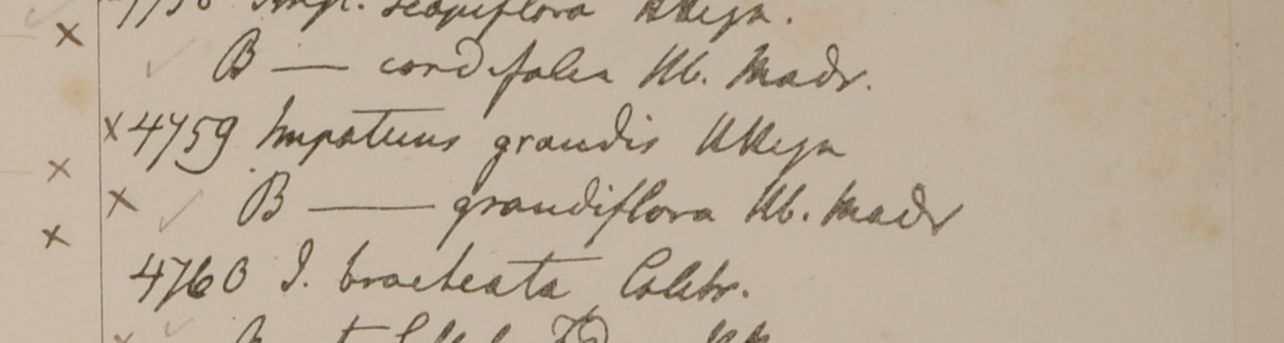 4758 Imp. scapiflora HHeyn.
B — cordifolia Hb. Madr.
x 4759 Impatiens grandis HHeyn
x B — grandiflora Hb. Madr
4760 I. bracteata Colebr.